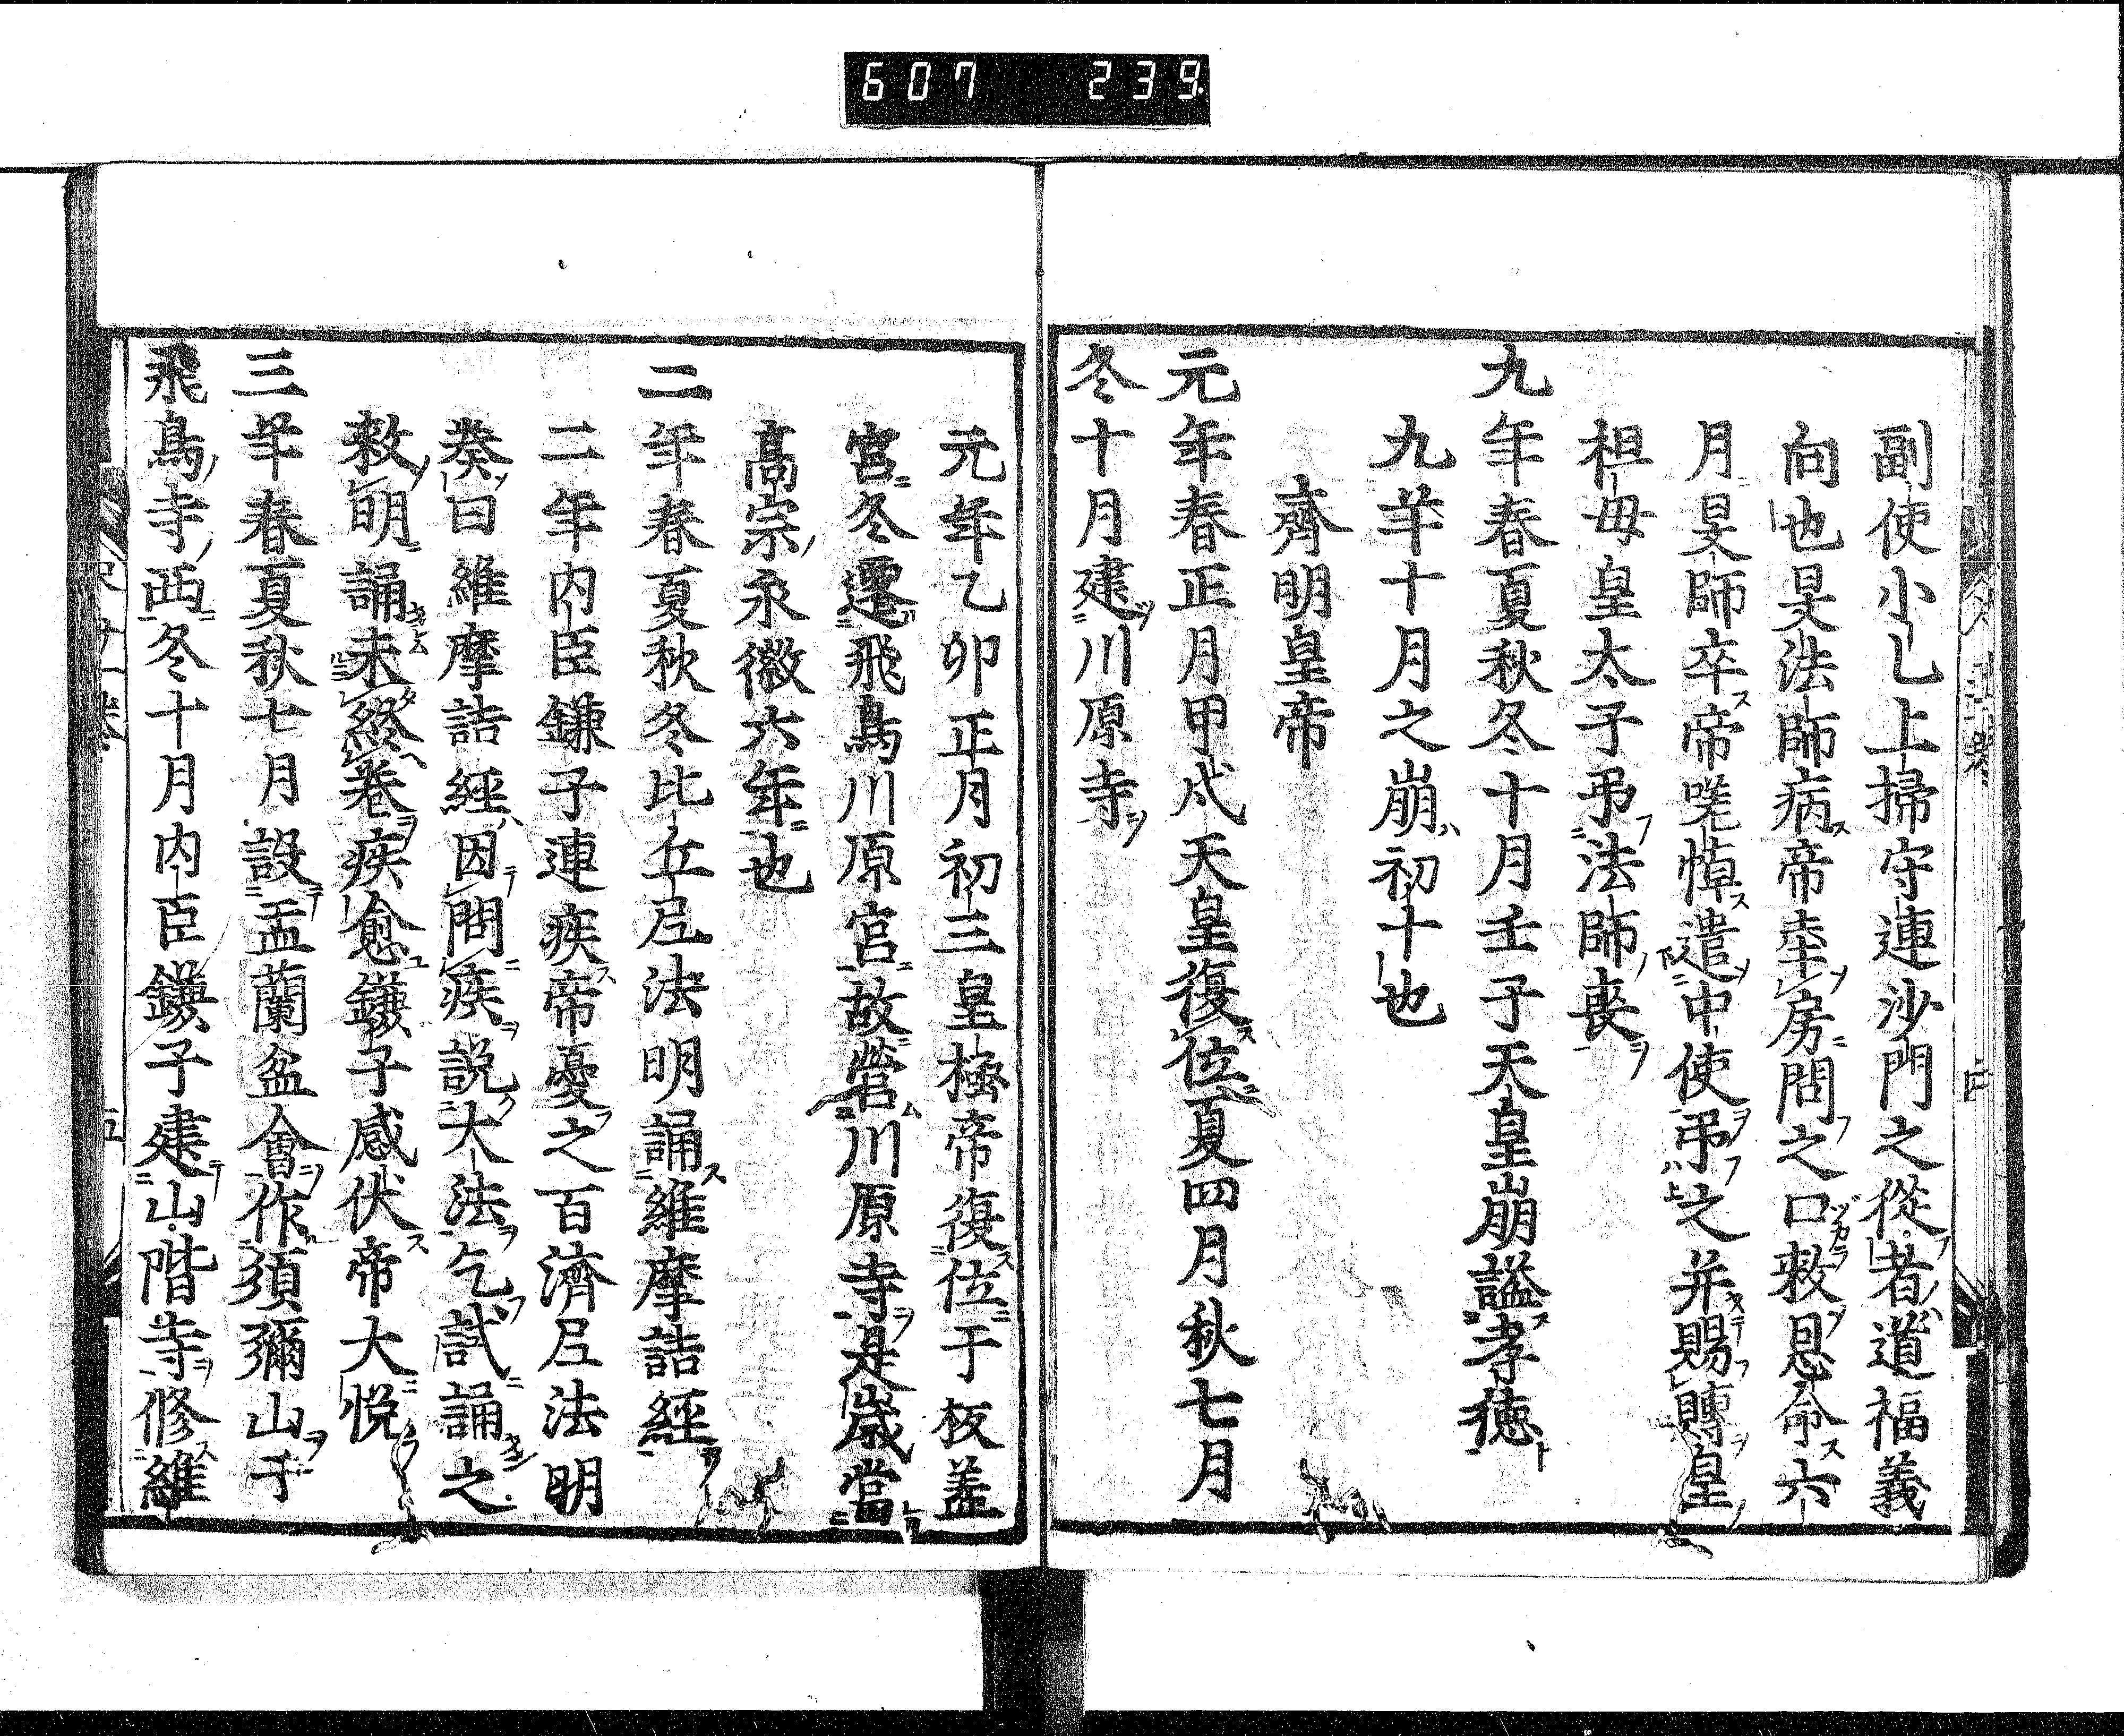 607 239
副使小乙上掃守連沙門之從者道福義
向也旻法師病帝幸房問之口敕恩命六
月旻師卒帝嘆悼遣中使弔之并賜賻皇
祖母皇太子弔法師喪
九年春夏秋冬十月壬子天皇崩謚孝德
九年十月之崩初十也
齊明皇帝
元年春正月甲戌天皇復位夏四月秋七月
冬十月建川原寺
元年乙卯正月初三皇極帝復位于板盖
宮冬遷飛鳥川原宮故營川原寺是歲當
高宗永徽六年也
二年春夏秋冬比丘尼法明誦維摩詰經
二年内臣鎌子連疾帝憂之百濟尼法明
奏曰維摩詰經因問疾説大法乞試誦之
敕明誦未終卷疾愈鎌子感伏帝大悅
三年春夏秋七月設盂蘭盆會作須彌山于
飛鳥寺西冬十月内臣鎌子建山階寺修維